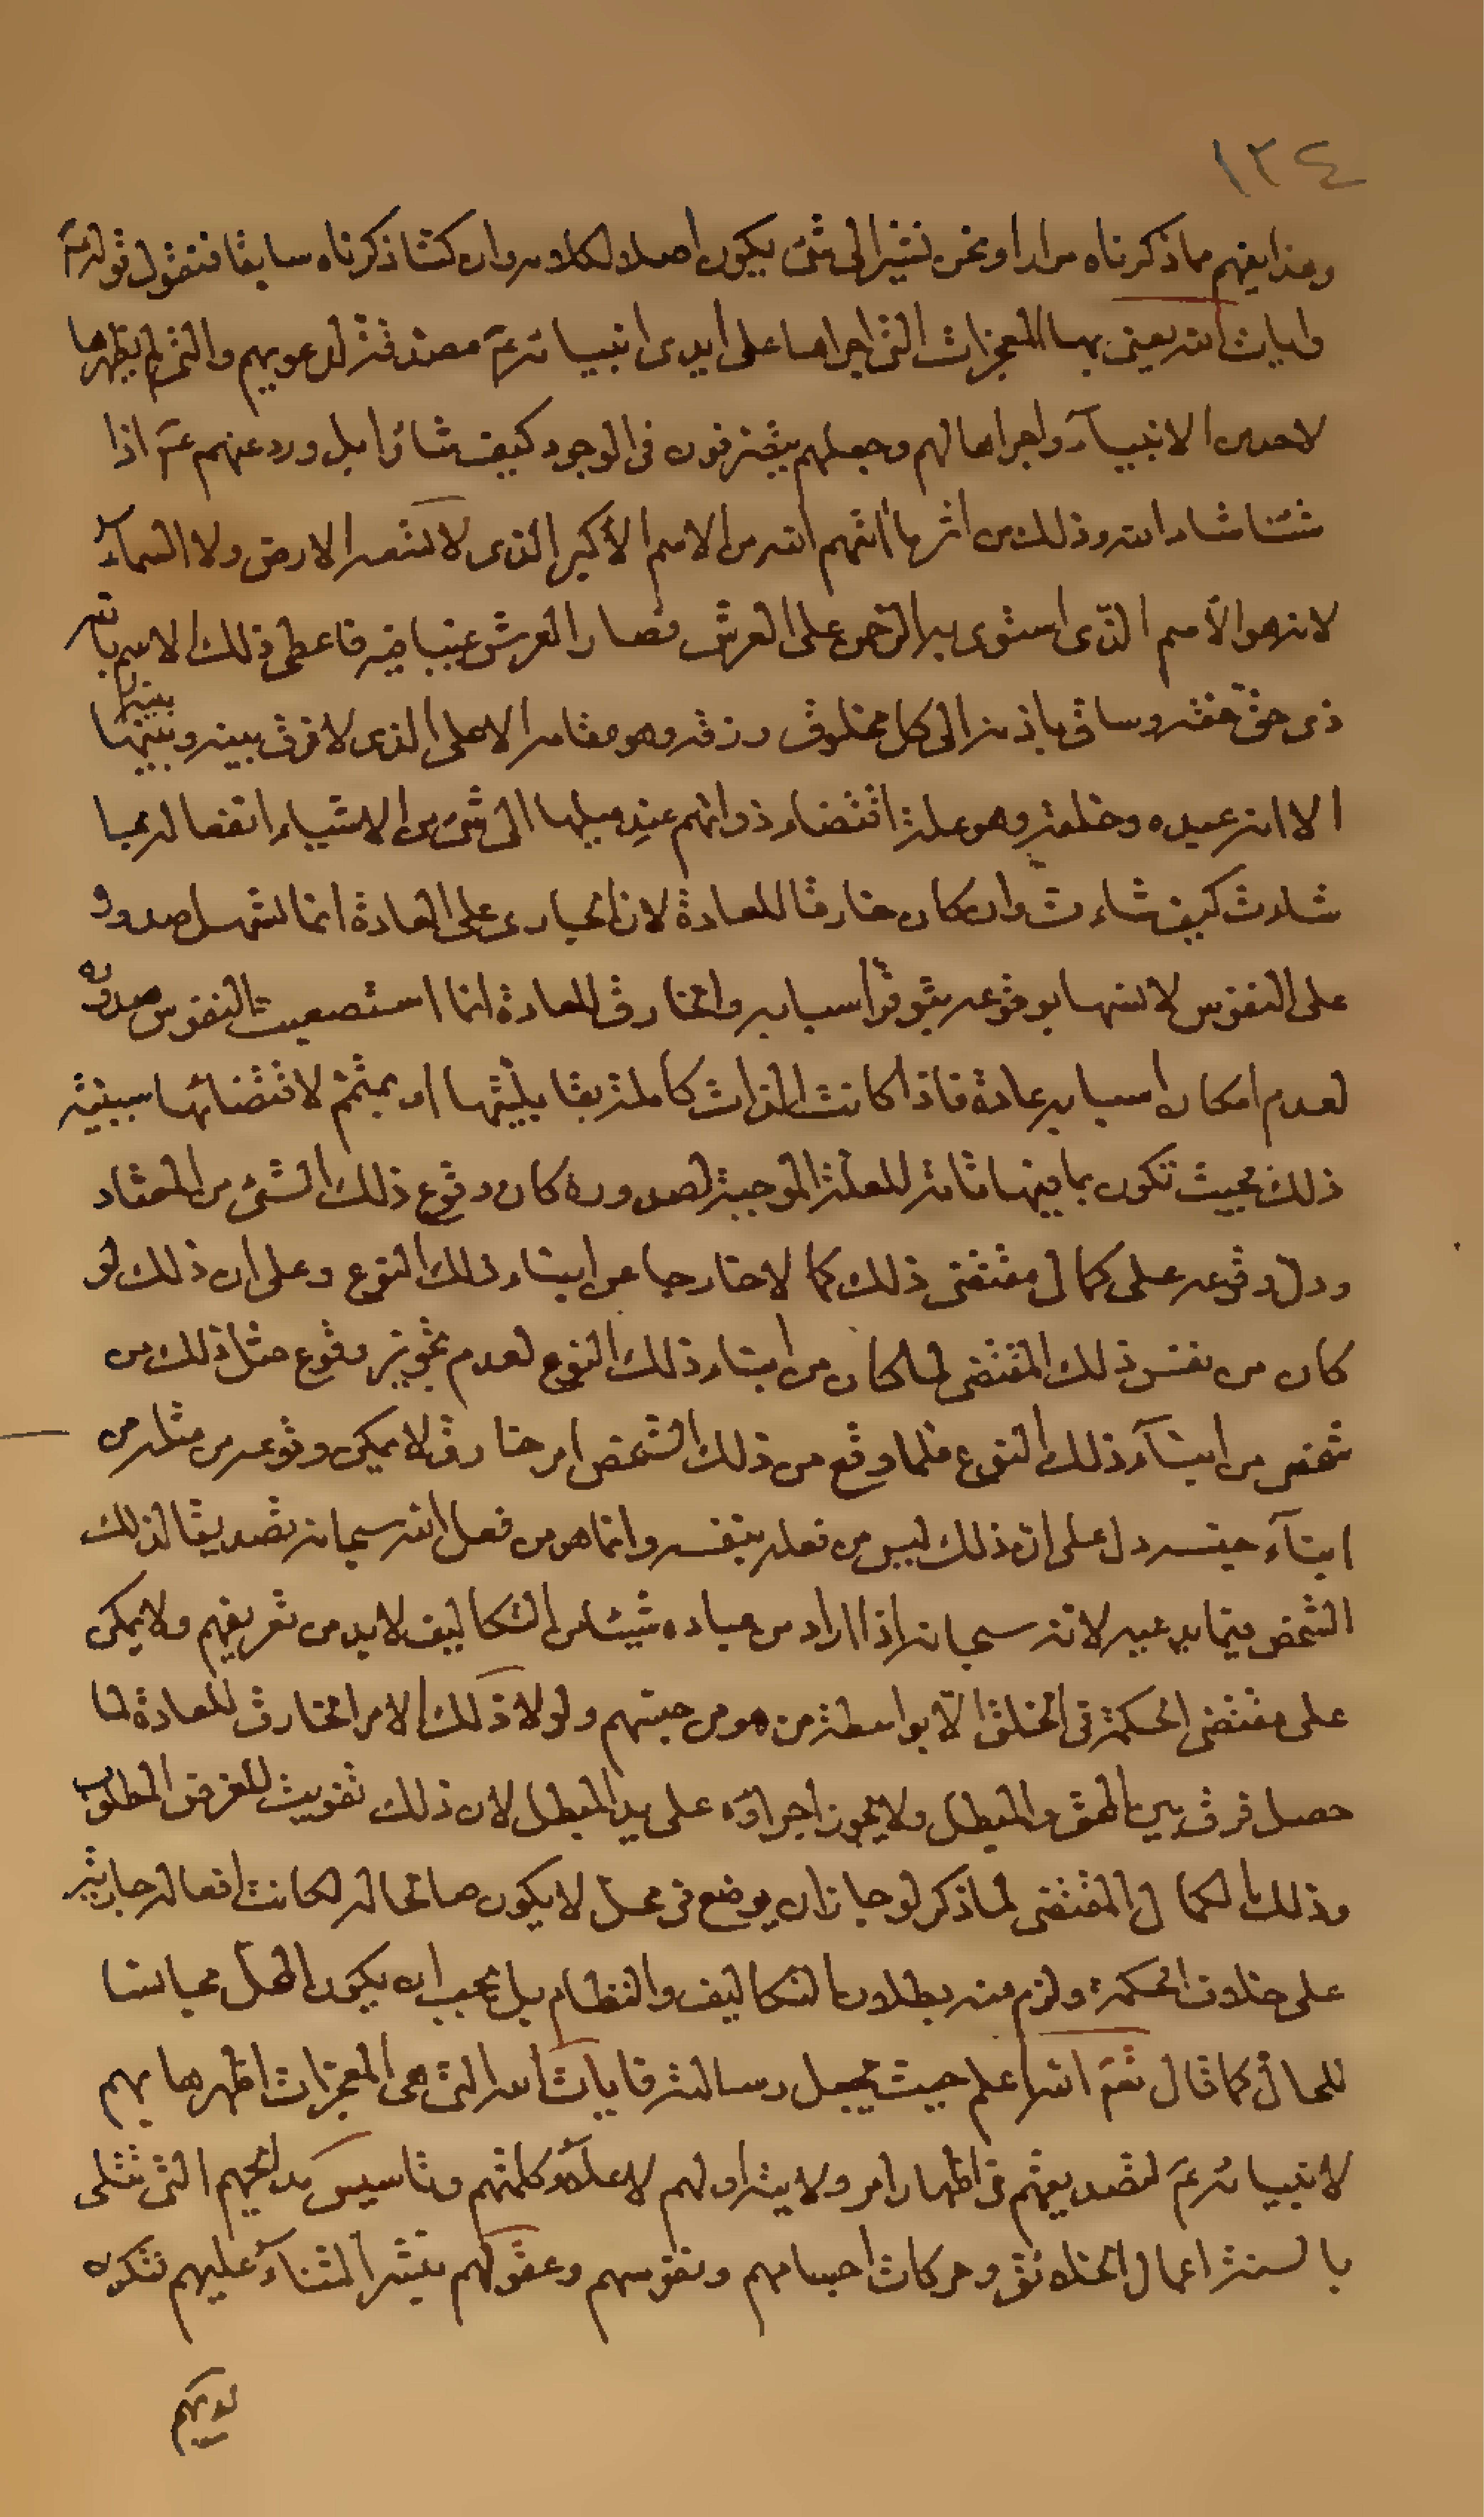 ١٣٤
وهذا يفهم مما ذكرناه مرارا ونحن نشير الى شئ يكون اصلا للكلام وان كنا ذكرناه سابقا فنقول قوله ع
وايات الله يعنى بها المعجزات التى اجراها على ايدى انبيائه ع مصدقة لدعويهم والتى لم يظهرها
لاحد من الانبيآء واجراها لهم وجعلهم يتصرفون فى الوجود كيف شاؤا بل ورد عنهم ع اذا
شئنا شاء الله وذلك من اثر ما اتيهم الله من الاسم الأكبر الذى لا تسعه الارض ولا السمآء
لانه هو الأسم الذى استوى به الرحمن على العرش فصار العرش غيبا فيه فاعطى ذلك الاسم باذنه
ذى حق حقه وساق باذنه الى كل مخلوق رزقه وهو مقامه الاعلى الذى لا فرق بينه وبينها
الا انه عبده وخلقه وهو علة اقتضاء ذواتهم عند ميلها الى شئ من الاشياء انفعاله بما
شاءت كيف شاءت وان كان خارقا للعادة لان الجارى على العادة انما تسهل صدوره
على النفوس لانسها بوقوعه بتوفر اسبابه والخارق للعادة انما استصعبت النفوس صدوره
لعدم امكان اسبابه عادة فاذا كانت الذات كاملة بقابليتها او بمتمم لاقتضائها سببية
ذلك بحيث تكون بما فيها تامة للعلة الموجبة لصدوره كان وقوع ذلك الشئ من المعتاد
ودل وقوعه على كمال مقتضى ذلك كما لا خارجا عن ابناء ذلك النوع وعلى ان ذلك لو
كان من نفس ذلك المقتضى لما كان من ابناء ذلك النوع لعدم تجويز وقوع مثل ذلك من
شخص من ابنآء ذلك النوع فلما وقع من ذلك الشخص امر خارق لا يمكن وقوعه من مثله من
ابنآء جنسه دل على ان ذلك ليس من فعله بنفسه وانما هو من فعل الله سبحانه تصديقا لذلك
الشخص فيما يدعيه لانه سبحانه اذا اراد من عباده شيئا من التكاليف لا بد من تعريفهم ولا يمكن
على مقتضى الحكمة فى الخلق الا بواسطة من هو من جنسهم ولولا ذلك الامر الخارق للعادة لما
حصل فرق بين المحق والمبطل ولا يجوز اجراؤه على يد المبطل لان ذلك تفويت للغرض المطلوب
وذلك الكمال المقتضى لما ذكر لو جاز ان يوضع فى محل لا يكون صالحا له لكانت افعاله جارية
على خلاف الحكمة ولزم منه بطلان التكاليف والنظام بل يجب ان يكون المحل مجانسا
للحال كما قال تع الله اعلم حيث يجعل رسالته فايات الله التى هى المعجزات اظهرها بهم
لأنبيائه ع لتصديقهم فى اظهار امر ولايته اولهم لاعلآء كلمتهم وتاسيس مدائحهم التى تتلى
بالسنة اعمال الخلائق وحركات اجسامهم ونفوسهم وعقولهم بنشر الثنآء عليهم تتكره
لديهم